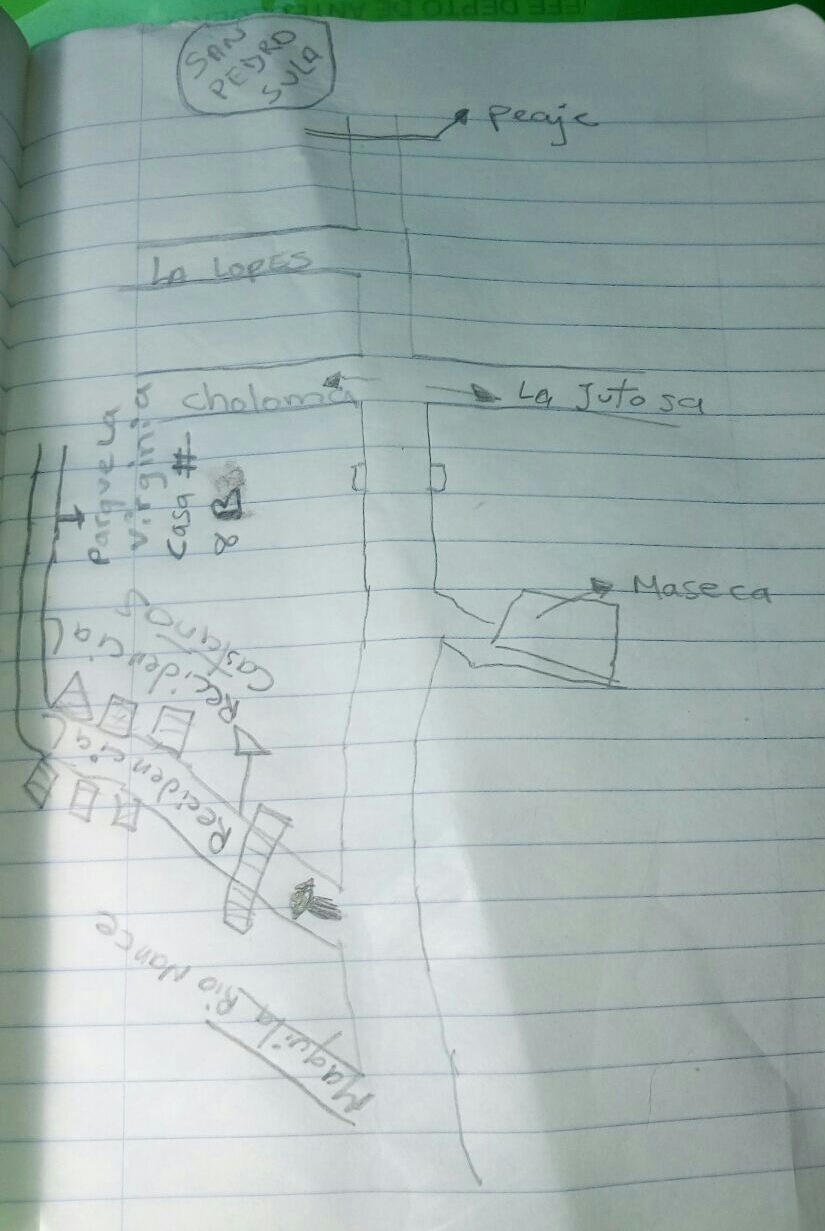 JEFE DEPTO DE ANTE
SAN
PEDRO
SULA
Peaje
LA LOPES
Choloma
La Jutosa
Parque La
Virginia
Casa #
8 B
Maseca
Recidencial
Castaños
Recidencial
Maquila Rio Nance